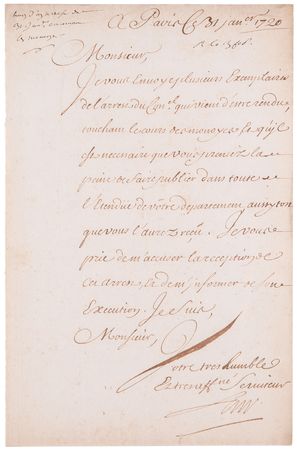 A Paris Ce 31 janer 1720
Monsieur,
Je vous Envoye plusieurs Exemplaires
de l'arrest du Conel qui vient d'etre rendu
touchant le cours des monoyes et qu'il
est necessaire que vous preniez la
peine de faire publier dans toute
l'Etendue de vôtre departement, aussytost
que vous l'aurez reçu. Je vous
prie de m'accuser la reception de
cet arrest, et de m'informer de son
Execution. Je suis,
Monsieur,
Votre tres humble
Et tres affné Serviteur
Law